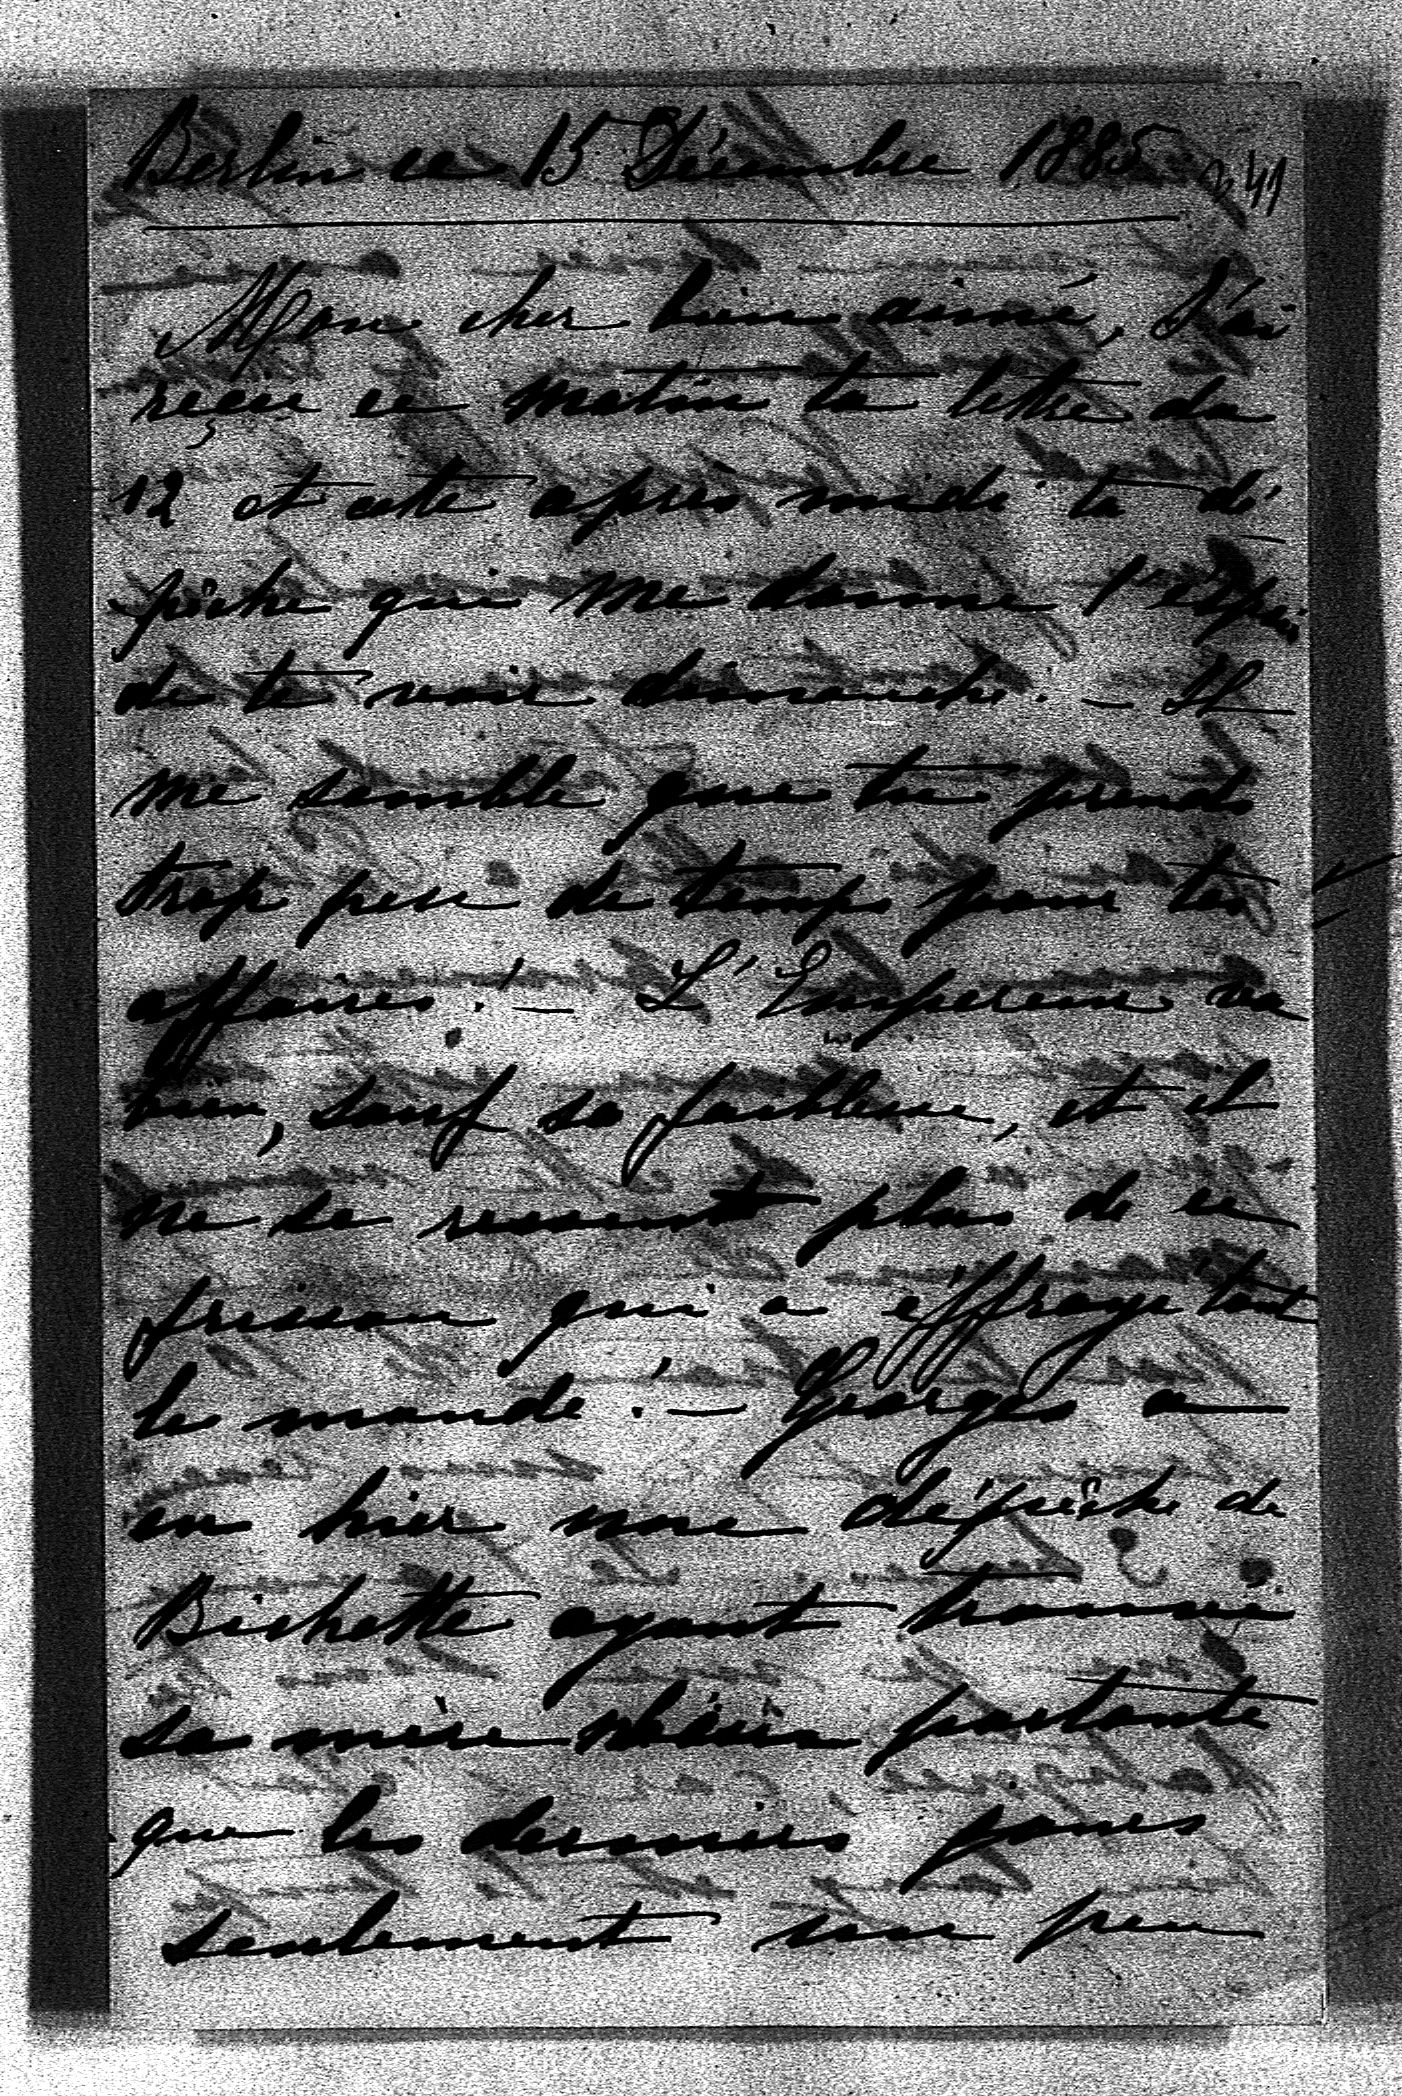 Berlin ce 15 Décembre 1885 241
Mon cher bien aimé, J'ai
reçu ce matin ta lettre du
12 et cette après midi ta dé
pêche qui me donne l'espoir
de te voir dimanche. — Il
me semble que tu prends
trop peu de temps pour tes
affaires! — L'Empereur va
bien, sauf sa faiblesse, et il
ne se ressent plus de ce
frisson qui a éffrayé tout
le monde! — Georges a
eu hier une dépêche de
Bichette ayant trouvé
sa mère portante
que les derniers jours
seulement un peu